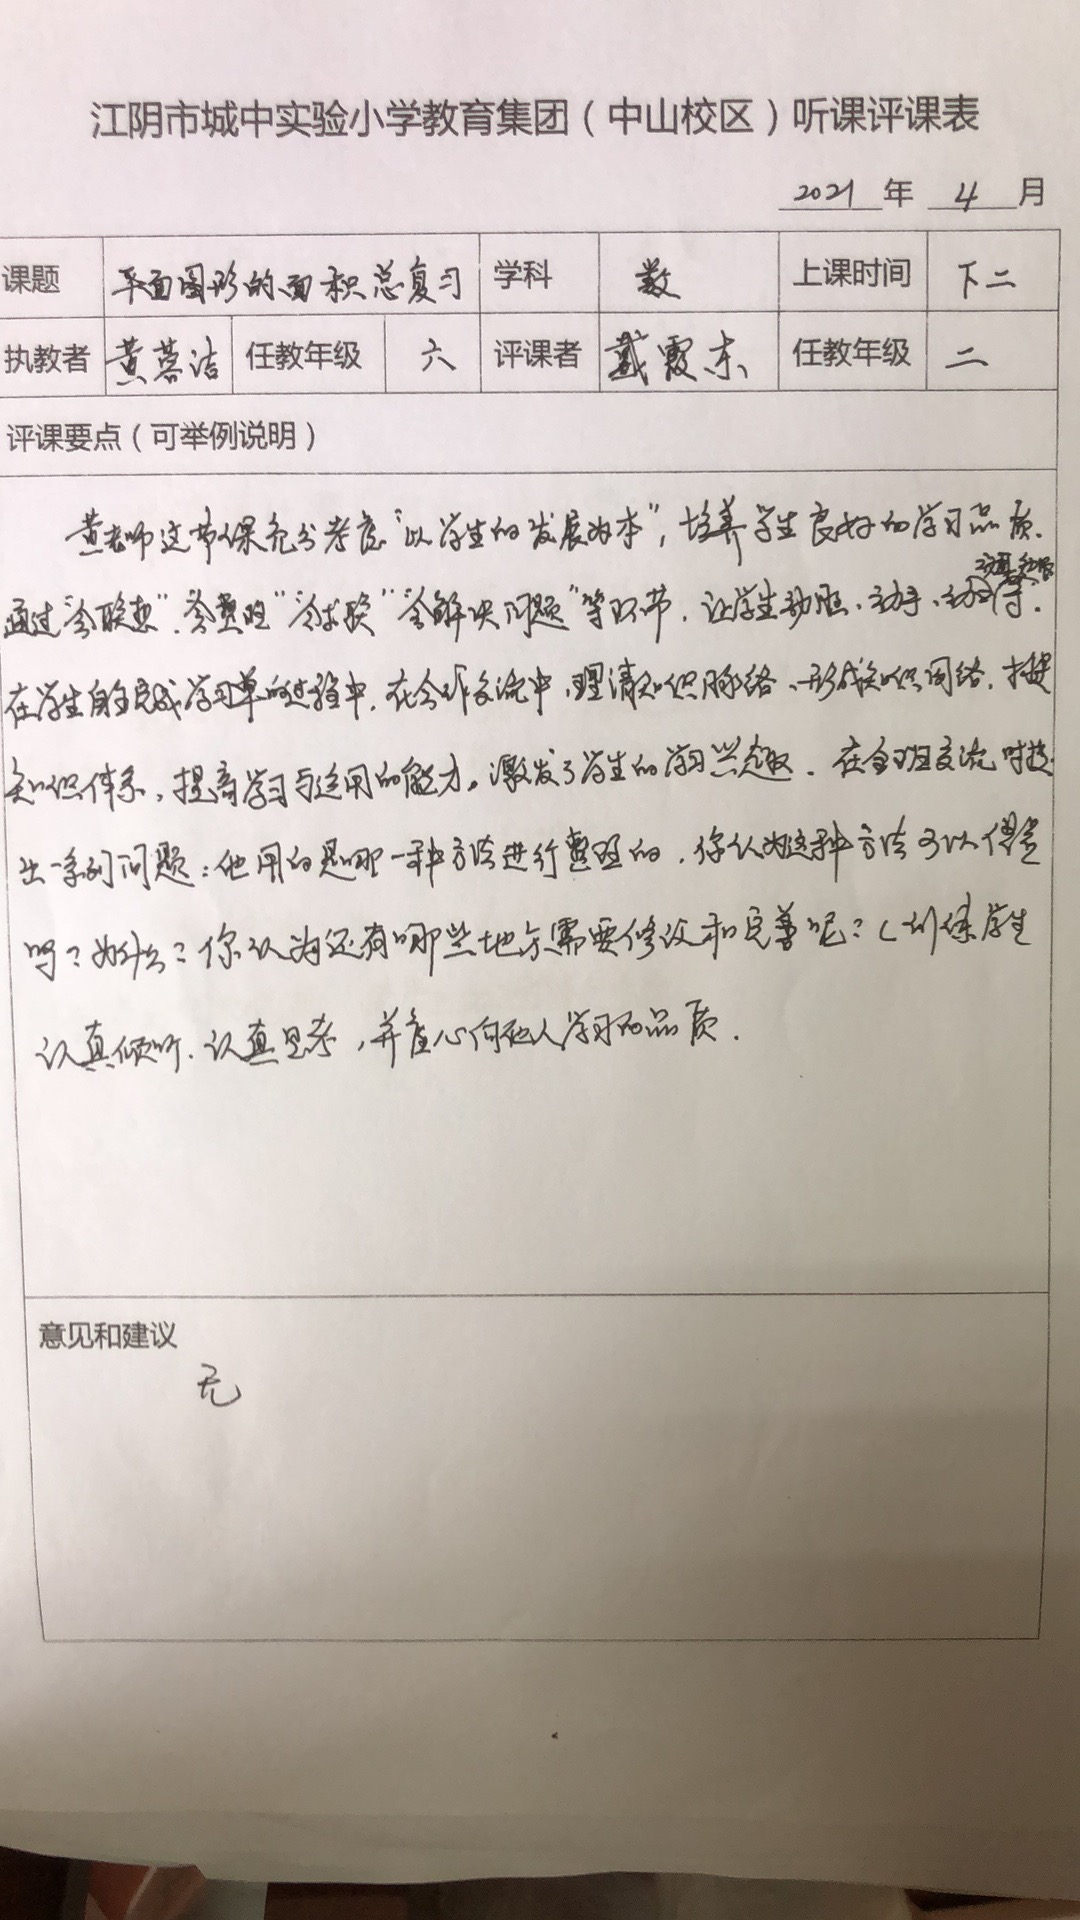 江阴市城中实验小学教育集团（中山校区）听课评课表
2021 年 4 月
课题 平面图形的面积总复习 学科 数 上课时间 下二
执教者 黄慕洁 任教年级 六 评课者 戴霞东 任教年级 二
评课要点（可举例说明）
黄老师这节课充分考虑“以学生的发展为本”，培养学生良好的学习品质.
通过“会联想”.“会整理”“会求联”“会解决问题”等环节.让学生动脑、动手、动口等.
在学生自主完成学习单的过程中.在合作交流中,理清知识脉络、形成知识网络.搭建
知识体系,提高学习与运用的能力。激发了学生的学习兴趣.在全班交流时提
出一系列问题:他用的是哪一种方法进行整理的.你认为这种方法可以借鉴
吗?为什么?你认为还有哪些地方需要修改和完善呢?(训练学生
认真倾听.认真思考,并虚心向他人学习的品质.
意见和建议
无